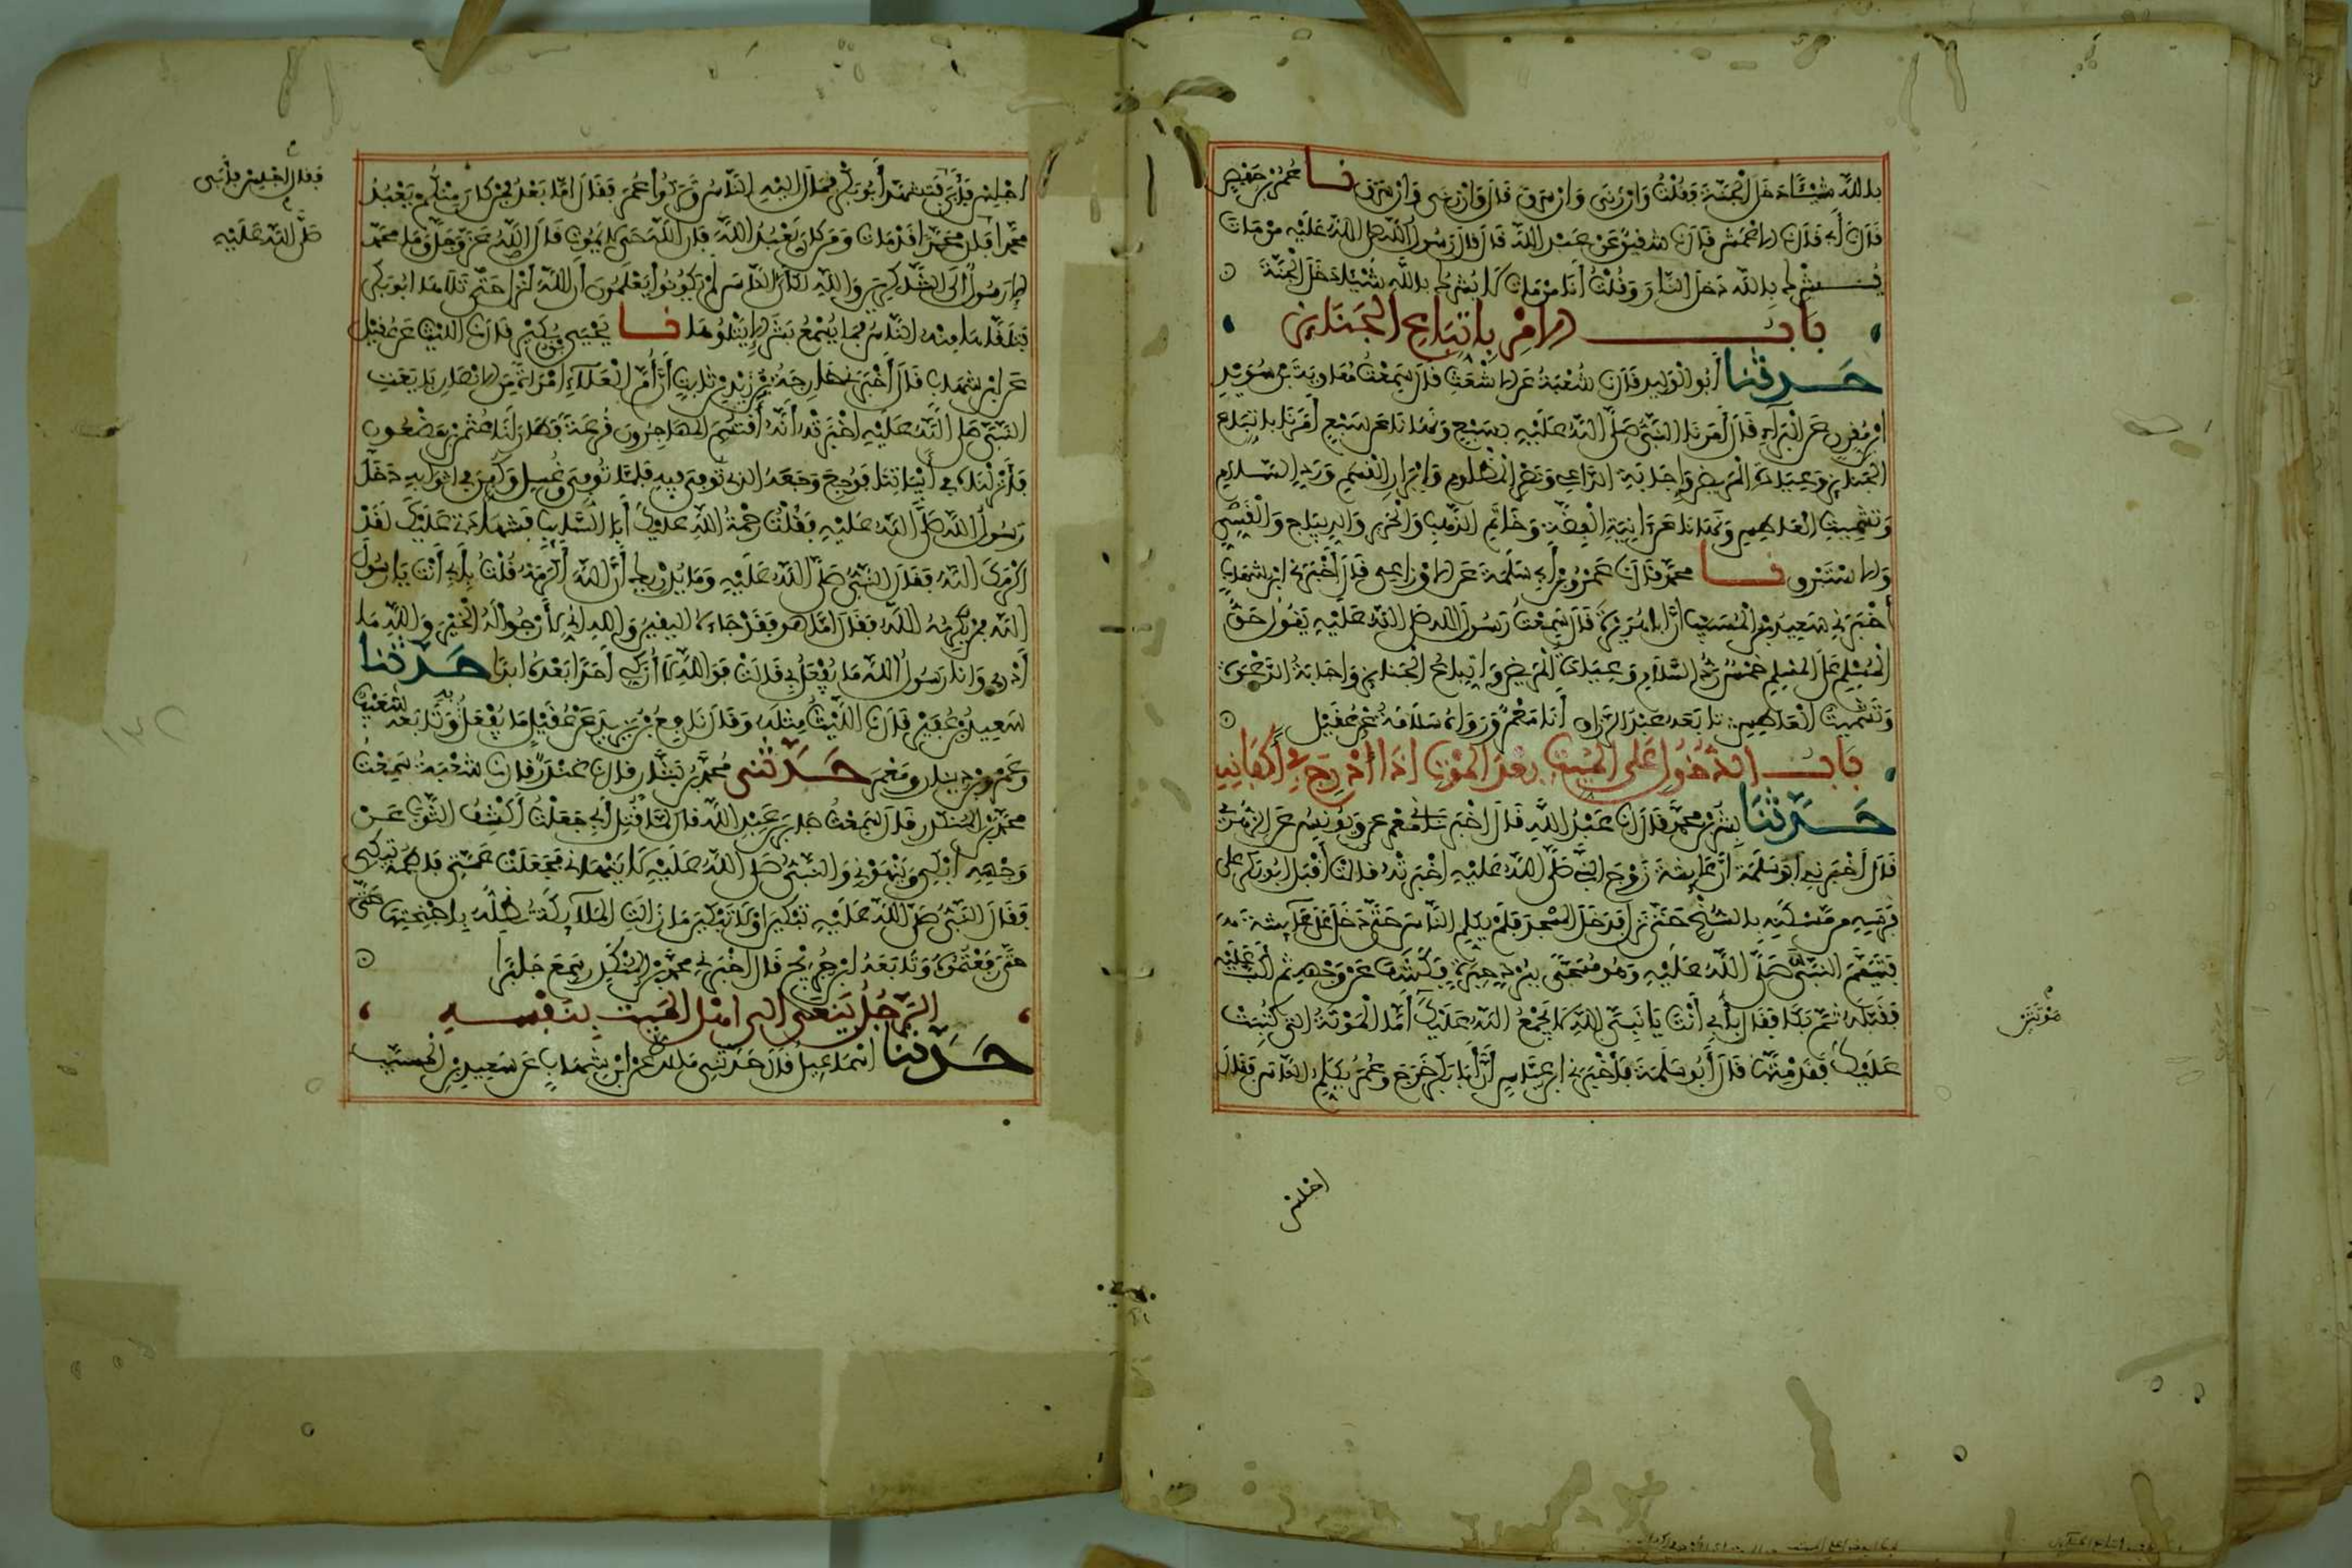 بالله شيئا دخل الجنة فقلت وان زنى وان سرق قال وان زنى وان سرق نا عمر بن حفص
قال نا أبي قال نا الاعمش قال نا شقيق عن عبد الله قال قال رسول الله صلى الله عليه من مات
يشرك بالله دخل النار وقلت أنا من مات لا يشرك بالله شيئا دخل الجنة
باب الامر باتباع الجنائز
حدثنا أبو الوليد قال نا شعبة عن الاشعث قال سمعت معاوية بن سويد
ابن مقرن عن البراء قال أمرنا النبي صلى الله عليه بسبع ونهانا عن سبع أمرنا باتباع
الجنائز وعيادة المريض وإجابة الداعي ونصر المظلوم وإبرار القسم ورد السلام
وتشميت العاطس ونهانا عن آنية الفضة وخاتم الذهب والحرير والديباج والقسي
والاستبرق نا محمد قال نا عمرو بن أبي سلمة عن الاوزاعي قال أخبرني ابن شهاب
أخبرني سعيد بن المسيب أن أبا هريرة قال سمعت رسول الله صلى الله عليه يقول حق
المسلم على المسلم خمس رد السلام وعيادة المريض واتباع الجنائز وإجابة الدعوة
وتشميت العاطس تابعه عبد الرزاق أنا معمر ورواه سلامة عن عقيل
باب الدخول على الميت بعد الموت اذا أدرج في أكفانه
حدثنا بشر بن محمد قال نا عبد الله قال اخبرنا معمر ويونس عن الزهري
قال أخبرني أبو سلمة أن عايشة زوج النبي صلى الله عليه اخبرته قالت أقبل ابو بكر على
فرسه من مسكنه بالسنح حتى نزل فدخل المسجد فلم يكلم الناس حتى دخل على عايشة
فتيمم النبي صلى الله عليه وهو مسجى ببرد حبرة فكشف عن وجهه ثم أكب عليه
فقبله ثم بكا فقال بأبي أنت يا نبي الله لا يجمع الله عليك أما الموتة التي كتبت
عليك فقد متها قال أبو سلمة فأخبرني ابن عباس أن أبا بكر خرج وعمر يكلم الناس فقال
موتتين
اجلس
اجلس فأبى فتشهد أبو بكر فمال اليه الناس وتركوا عمر فقال اما بعد فمن كان منكم يعبد
محمدا فان محمدا قد مات ومن كان يعبد الله فان الله حي لا يموت قال الله عز وجل وما محمد
الا رسول الى الشاكرين والله لكأن الناس لم يكونوا يعلمون أن الله أنزلها حتى تلاها ابو بكر
فتلقاها منه الناس فما يسمع بشر الا يتلوها نا يحيى بن بكير قال نا الليث عن عقيل
عن ابن شهاب قال أخبرني خارجة بن زيد بن ثابت أن أم العلاء امرأة من الانصار بايعت
النبي صلى الله عليه اخبرته أنه أقتسم المهاجرون قرعة فطار لنا عثمن بن مظعون
فأنزلناه في أبياتنا فوجع وجعه الذي توفي فيه فلما توفي وغسل وكفن في اثوابه دخل
رسول الله صلى الله عليه فقلت رحمة الله عليك أبا السايب فشهادتي عليك لقد
اكرمك الله فقال النبي صلى الله عليه وما يدريك أن الله أكرمه قلت بأبي أنت يا رسول
الله فمن يكرمه الله فقال اما هو فقد جاءه اليقين والله إني لأرجو له الخير والله ما
أدري وانا رسول الله ما يفعل بي قالت فو الله لا أزكي أحدا بعده ابدا حدثنا
سعيد بن عفير قال نا الليث مثله وقال نافع بن يزيد عن عقيل ما يفعل به وتابعه شعيب
وعمرو بن دينار ومعمر حدثني محمد بن بشار قال نا غندر قال نا شعبة سمعت
محمد بن المنكدر قال سمعت جابر بن عبد الله قال لما قتل أبي جعلت أكشف الثوب عن
وجهه أبكي وينهوني والنبي صلى الله عليه لا ينهاني فجعلت عمتي فاطمة تبكي
فقال النبي صلى الله عليه تبكين او لا تبكين ما زالت الملايكة تظله باجنحتها حتى
حتى رفعتموه وتابعه ابن جريج قال اخبرني محمد بن المنكدر سمع جابرا
الرجل ينعى الى اهل الميت بنفسه
حدثنا اسماعيل قال حدثني مالك عن ابن شهاب عن سعيد بن المسيب
فقال اجلس فأبى
صلى الله عليه